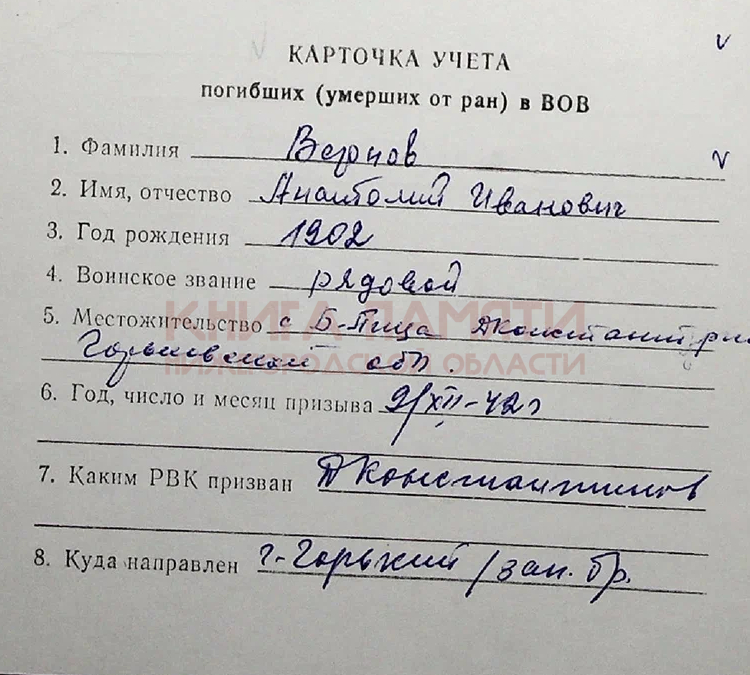 КАРТОЧКА УЧЕТА
погибших (умерших от ран) в ВОВ
1. Фамилия Веронов
2. Имя, отчество Анатолий Иванович
3. Год рождения 1902
4. Воинское звание рядовой
КНИГА ПАМЯТИ
5. Местожительство с Б-Пица Дконстант рн
Горьковской обл.
НИЖЕГОРОДСКОЙ ОБЛАСТИ
6. Год, число и месяц призыва 9/XII-42г
7. Каким РВК призван ДКонстантинов
8. Куда направлен г-Горький /зап. бр.